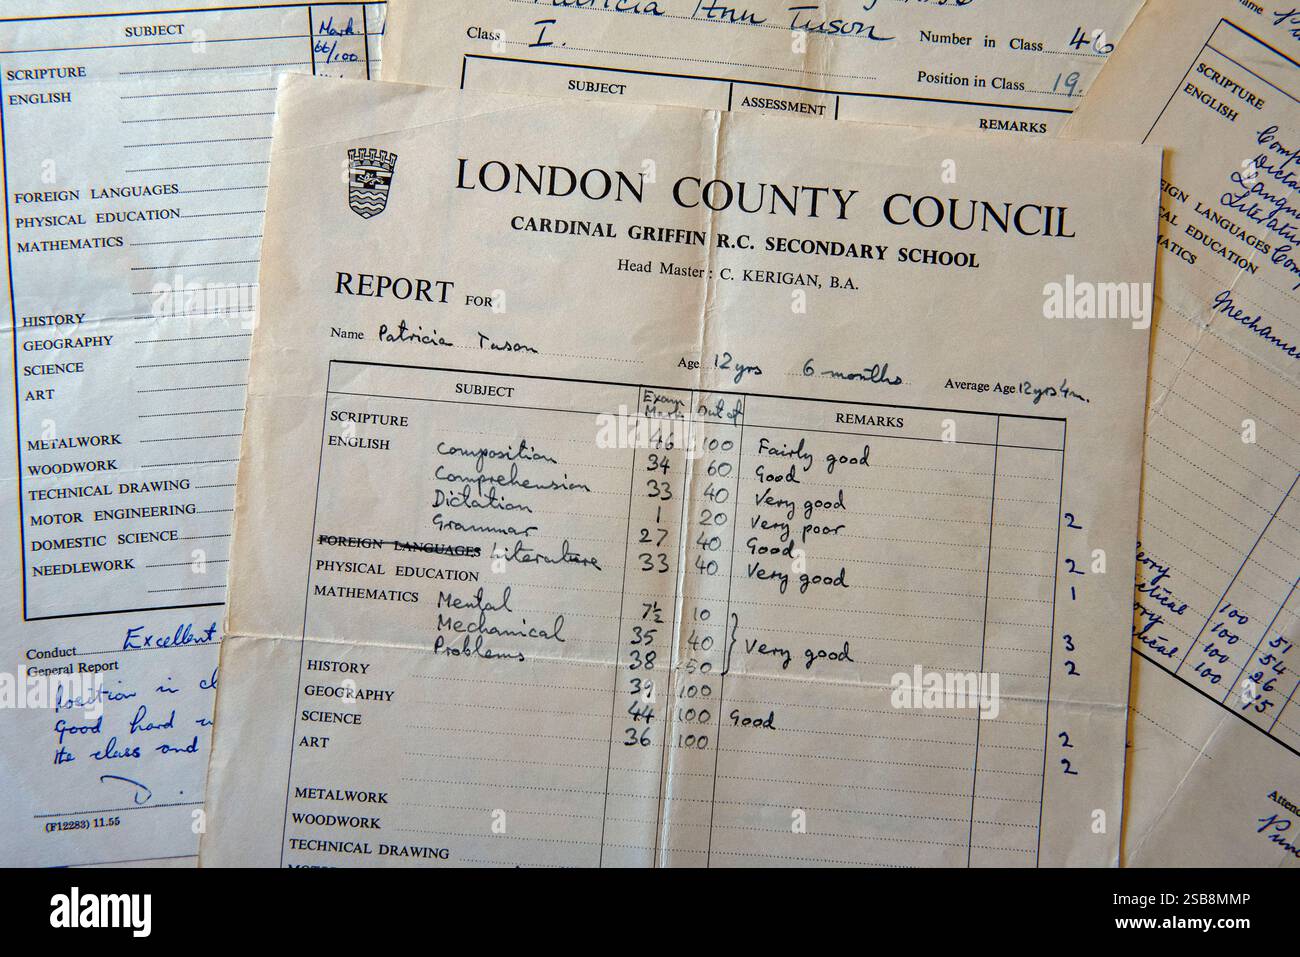 SUBJECT Mark
66/100
SCRIPTURE
ENGLISH
FOREIGN LANGUAGES
PHYSICAL EDUCATION
MATHEMATICS
HISTORY
GEOGRAPHY
SCIENCE
ART
METALWORK
WOODWORK
TECHNICAL DRAWING
MOTOR ENGINEERING
DOMESTIC SCIENCE
NEEDLEWORK
Conduct Excellent
General Report
Position in cl
Good hard
the class and
D.
(F12283) 11.55
Patricia Ann Tuson
Class I. Number in Class 46
Position in Class 19.
SUBJECT ASSESSMENT REMARKS
LONDON COUNTY COUNCIL
CARDINAL GRIFFIN R.C. SECONDARY SCHOOL
Head Master: C. KERIGAN, B.A.
REPORT FOR
Name Patricia Tuson Age 12 yrs 6 months Average Age 12 yrs 4 m.
SUBJECT Exam Mark Out of REMARKS
SCRIPTURE 46 100 Fairly good
ENGLISH Composition 34 60 Good
Comprehension 33 40 Very good 2
Dictation 1 20 Very poor
Grammar 27 40 Good 2
FOREIGN LANGUAGES Literature 33 40 Very good 1
PHYSICAL EDUCATION
MATHEMATICS Mental 7½ 10
Mechanical 35 40 } Very good 3
Problems 38 50 2
HISTORY 39 100
GEOGRAPHY 44 100 Good 2
SCIENCE 36 100 2
ART
METALWORK
WOODWORK
TECHNICAL DRAWING
Name
SCRIPTURE
ENGLISH Comp
Dictat
Langua
Literatur
EIGN LANGUAGES Comp
CAL EDUCATION
MATICS Mechanica
eory 100 51
ctical 100 54
ory 100 26
ctical 100 45
Atten
Pun
alamy
Image ID: 2SB8MMP
www.alamy.com